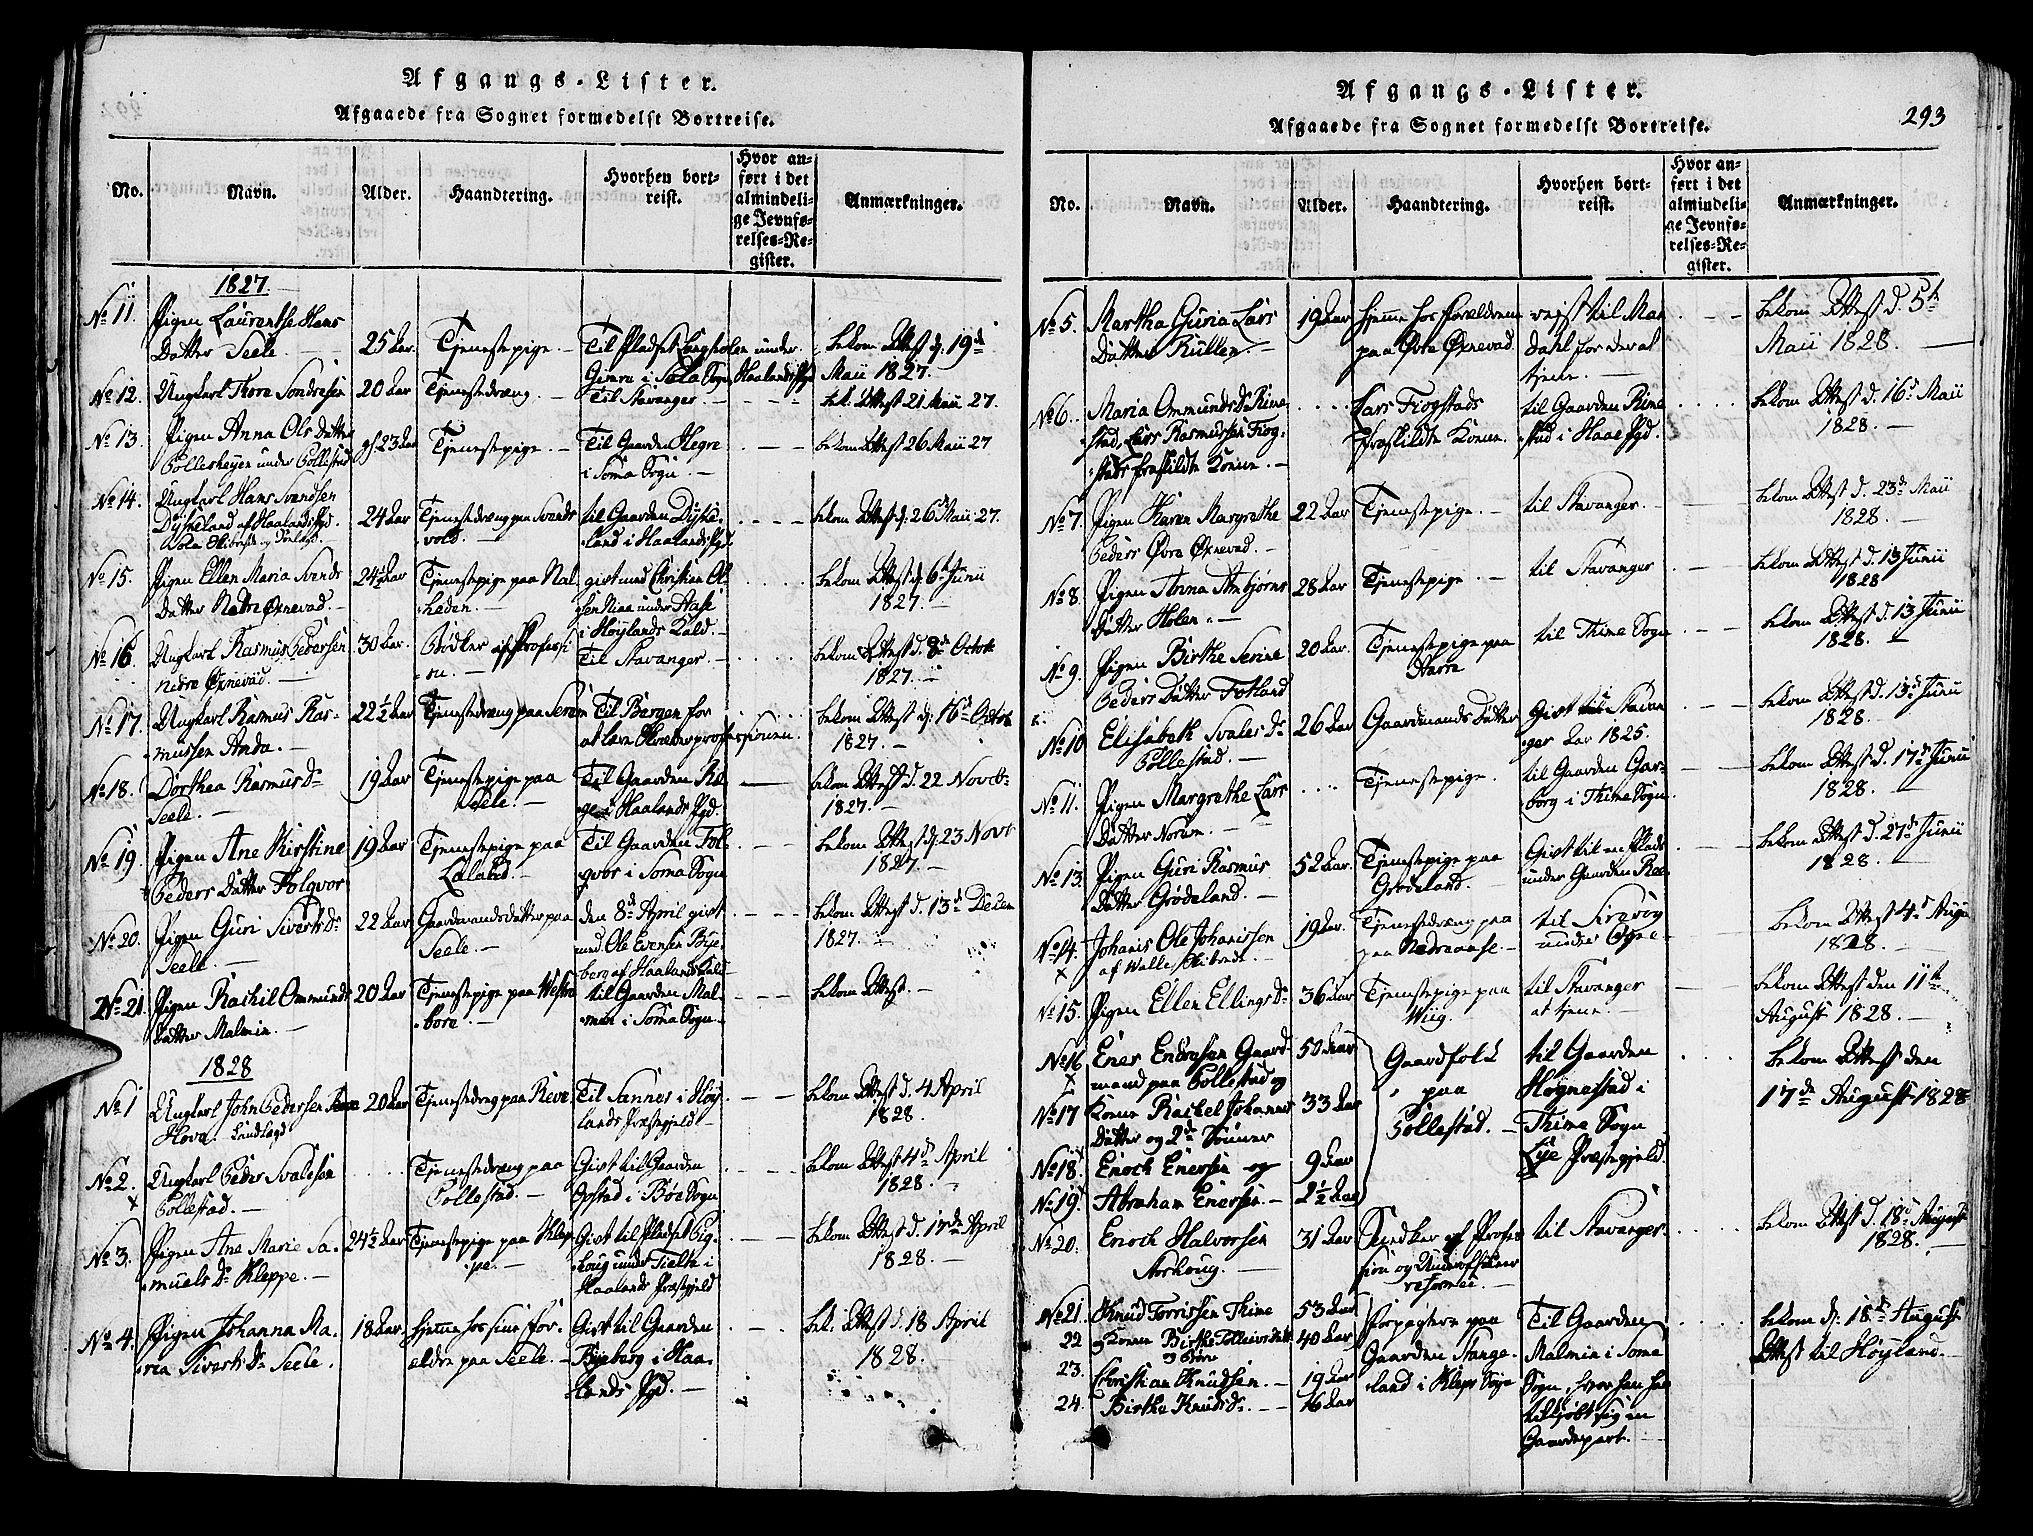 Afgangs-Lister.
Afgaaede fra Sognet formedelst Bortreise.
No. Navn. Alder. Haandtering. Hvorhen bortreist. Hvor anført i det almindelige Jevnførelses-Register. Anmærkninger.
1827
No 11. Pigen Laurentse Hans
Datter Seele. 25 Aar. Tjenestepige. Til Pladset under
Gimra i Sola Sogn Haalands Pgd bekom Attest d. 19de
Maii 1827.
No 12. Ungkarl Thore Sondresen 20 Aar Tjenestedræng. Til Stavanger bek. Attest 21 Maii 27.
No 13. Pigen Anna Ols Datter
under Pollestad 23 Aar Tjenestepige. Til Gaarden Hegre
i Soma Sogn. bekom Attest 26 Maii 27
No 14. Ungkarl Hans Svendsen
Dÿskeland af Haalands Pgd. 24 Aar Tjenestedræng paa
til Gaarden Dyske-
land i Haalands Pgd bekom Attest d. 26de Maii 27.
No 15. Pigen Ellen Maria Svends
Datter Nedre Øxnevad. 24½ Aar Tjenestepige paa Nal-
heden. givt med Christian Ol-
sen under Aase
i Høylands Kald. bekom Attest d. 6te Junii
1827.
No 16. Ungkarl Rasmus Pedersen
nedre Øxnevad. 30 Aar. Bødker af Professi-
on. Til Stavanger. bekom Attest d. 8de Octob
1827.
No 17. Ungkarl Rasmus Ras-
mussen Anda. 22½ Aar Tjenestedræng paa Til Bergen for
at lære professionen. bekom Attest d. 16de Octob
1827.
No 18. Dorthea Rasmusdr
Seele. 19 Aar Tjenestepige paa
Seele. Til Gaarden Ra-
ge i Haalands Pgd. bekom Attest d. 22 Novb
1827.
No 19. Pigen Ane Kirstine
Peders Datter Folqvor 19 Aar Tjenestepige paa
Laland. Til Gaarden Fol-
qvor i Soma Sogn bekom Attest d. 23 Novb
1827.
No 20. Pigen Guri Siverts Dr
Seele. 22 Aar Gaardmandsdatter paa
Seele. den 8de April givt
med Ole Evensen Bye-
berg af Haalands Kald bekom Attest d. 13de Decem
1827.
No 21. Pigen Rachil Ommunds
Datter Malmin. 20 Aar Tjenestepige paa Westra
bore. til Gaarden Mal-
min i Soma Sogn. bekom Attest.
1828
No 1 Ungkarl John Pedersen
Hove. 20 Aar Tjenestedreng paa Reve. Til Sannes i Høy-
lands Præstegjeld bekom Attest d. 4 April
1828.
No 2. Ungkarl Peder Svalesen
Pollestad. Tjenestedræng paa
Pollestad. Givt til Gaarden
Opstad i Bøe Sogn bekom Attest 4de April
1828.
No 3. Pigen Ane Marie Sa-
muels Dr Kleppe. 24½ Aar Tjenestepige paa Klep-
pe. Givt til Pladset
under Tielte i
Haalands Præstegjeld bekom Attest d. 17de April
1828.
No 4. Pigen Johanna Ma-
ria Siverts Dr Seele. 18 Aar. hjemme hos sine for-
ældre paa Seele. Givt til Gaarden
Byeberg i Haa-
lands Pgd. bek. Attest d. 18 April
1828.
Afgangs-Lister.
293
Afgaaede fra Sognet formedelst Bortreise.
No. Navn. Alder. Haandtering. Hvorhen bortreist. Hvor anført i det almindelige Jevnførelses-Register. Anmærkninger.
No 5. Martha Guria Lars
Datter Rullen. 19 Aar hjemme hos forældrene
paa Øvre Øxnevad rejst til Man
dahl for der at
tjene. bekom Attest d. 5te
Maii 1828.
No 6. Maria Ommunds Dr Rime
stad, Lars Rasmussen Frog-
stads fraskildte Konne. Lars Frogstads
fraskildte Konne. til Gaarden Rime
stad i Haae Pgd. bekom Attest d. 16de Maii
1828.
No 7. Pigen Karen Margrethe
Peders Øvre Øxnevad. 22 Aar Tjenestepige. til Stavanger. bekom Attest d. 23de Maii
1828.
No 8. Pigen Anna Asbjørns
Datter Holen. 28 Aar Tjenestepige til Stavanger bekom Attest d. 13 Junii
1828
No 9. Pigen Birthe Serine
Peders Datter Fotland 20 Aar. Tjenestepige paa
til Thime Sogn bekom Attest d. 13 Junii
1828.
No 10 Elisabeth Svales Dr
Pollestad. 26 Aar Gaardmands Datter Givt til Stavan
ger Aar 1825. bekom Attest d. 13de Junii
1828.
No 11. Pigen Margrethe Lars
Datter Norem. Tjenestepige. til Gaarden Gar-
borg i Thime Sogn. bekom Attest d. 17de Junii
1828.
No 13 Pigen Guri Rasmus
Datter Grødeland. 52 Aar. Tjenestepige paa
Grødeland. Givt til en Plads
under Gaarden bekom Attest d. 27de Junii
1828.
No 14. Johanis Ole Johanissen
af Walle 19 Aar. Tjenestedræng paa
paa til Sirevog
under Ogne. bekom Attest 4de Augu
1828.
No 15. Pigen Ellen Ellings Dr 36 Aar Tjenestepige paa
Wiig. til Stavanger
at tjene. bekom Attest den 11te
August 1828.
No 16 Ener Endresen Gaard-
mand paa Pollestad og 50 Aar Gaardfolk
paa
Pollestad. til Gaarden
Høgnestad i
Thime Sogn
Lye Præstegjeld. bekom Attest den
17de August 1828
No 17 Konen Rachel Johannes
Datter og 2de Sønner 33 Aar
No 18. Enoch Enersen og 9 Aar
No 19. Abraham Enersen. 2½ Aar
No 20. Enoch Halvorsen
31 Aar af Profes
sion og Underofficeer
til Stavanger. bekom Attest d. 18de August
1828.
No 21. Knud Torrissen Thime 53 Aar Forpagtere paa
Gaarden Stange-
land i Klep Sogn Til Gaarden
Malmin i Soma
Sogn, hvor han har
tilkjøbt sig en
Gaardepart. bekom d. 18de August
Attest til Höyland.
22 og Konen Birthe Tollievsdatt 40 Aar
23. Christian Knudsen. 19 Aar
24. Birtha Knuds Dr. 16 Aar